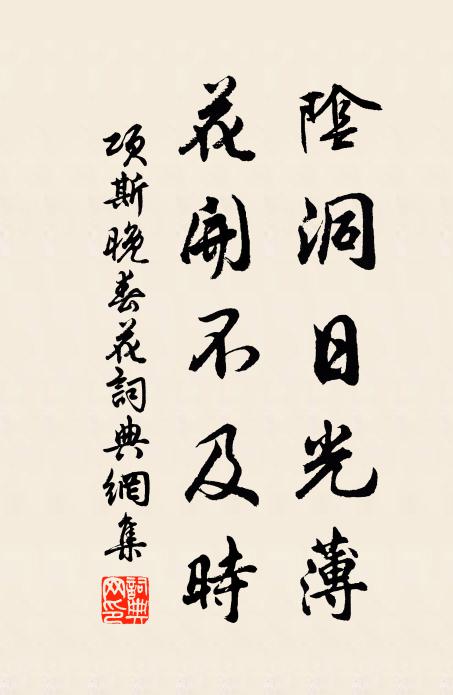 陰洞日光薄
花開不及時
項斯晚春花詞典網集
詞典網印